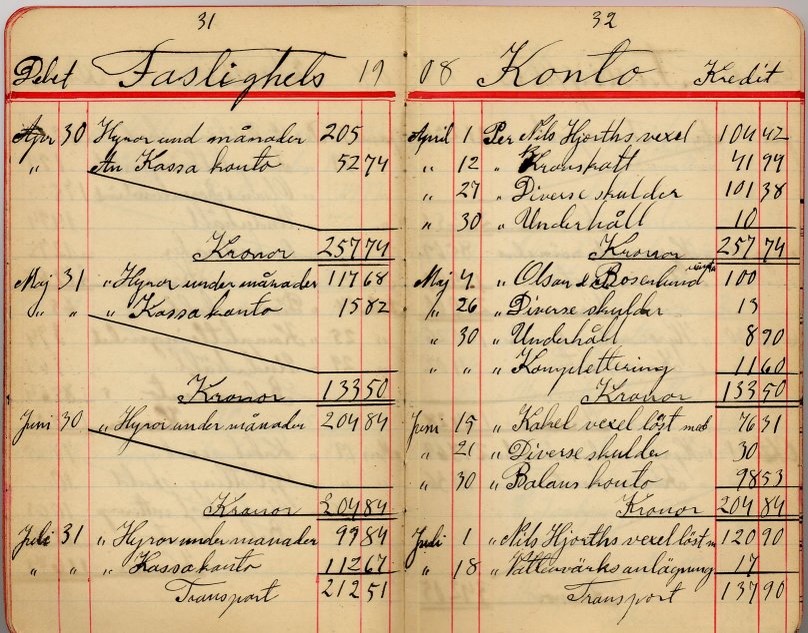 31
Debet Fastighets 19
Apr 30 Hyror und månader 205
" An Kassa konto 52 74
Kronor 257 74
Maj 31 " Hyror under månader 117 68
" " " Kassa konto 15 82
Kronor 133 50
Juni 30 " Hyror under månader 204 84
Kronor 204 84
Juli 31 " Hyror under månader 99 84
" " " Kassa konto 112 67
Transport 212 51
32
08 Konto Kredit
April 1 Per Nils Hjorths vexel 104 42
" 12 " Kronskatt 41 94
" 27 " Diverse skulder 101 38
" 30 " Underhåll 10
Kronor 257 74
Maj 4 " Olson & Rosenlund 100
" 26 " Diverse skulder 13
" 30 " Underhåll 8 90
" " " Komplettering 11 60
Kronor 133 50
Juni 15 " Kakel vexel löst med 76 31
" 21 " Diverse skulder 30
" 30 " Balans konto 98 53
Kronor 204 84
Juli 1 " Nils Hjorths vexel löst m 120 90
" 18 " Vattenvärksanlägning 17
Transport 137 90